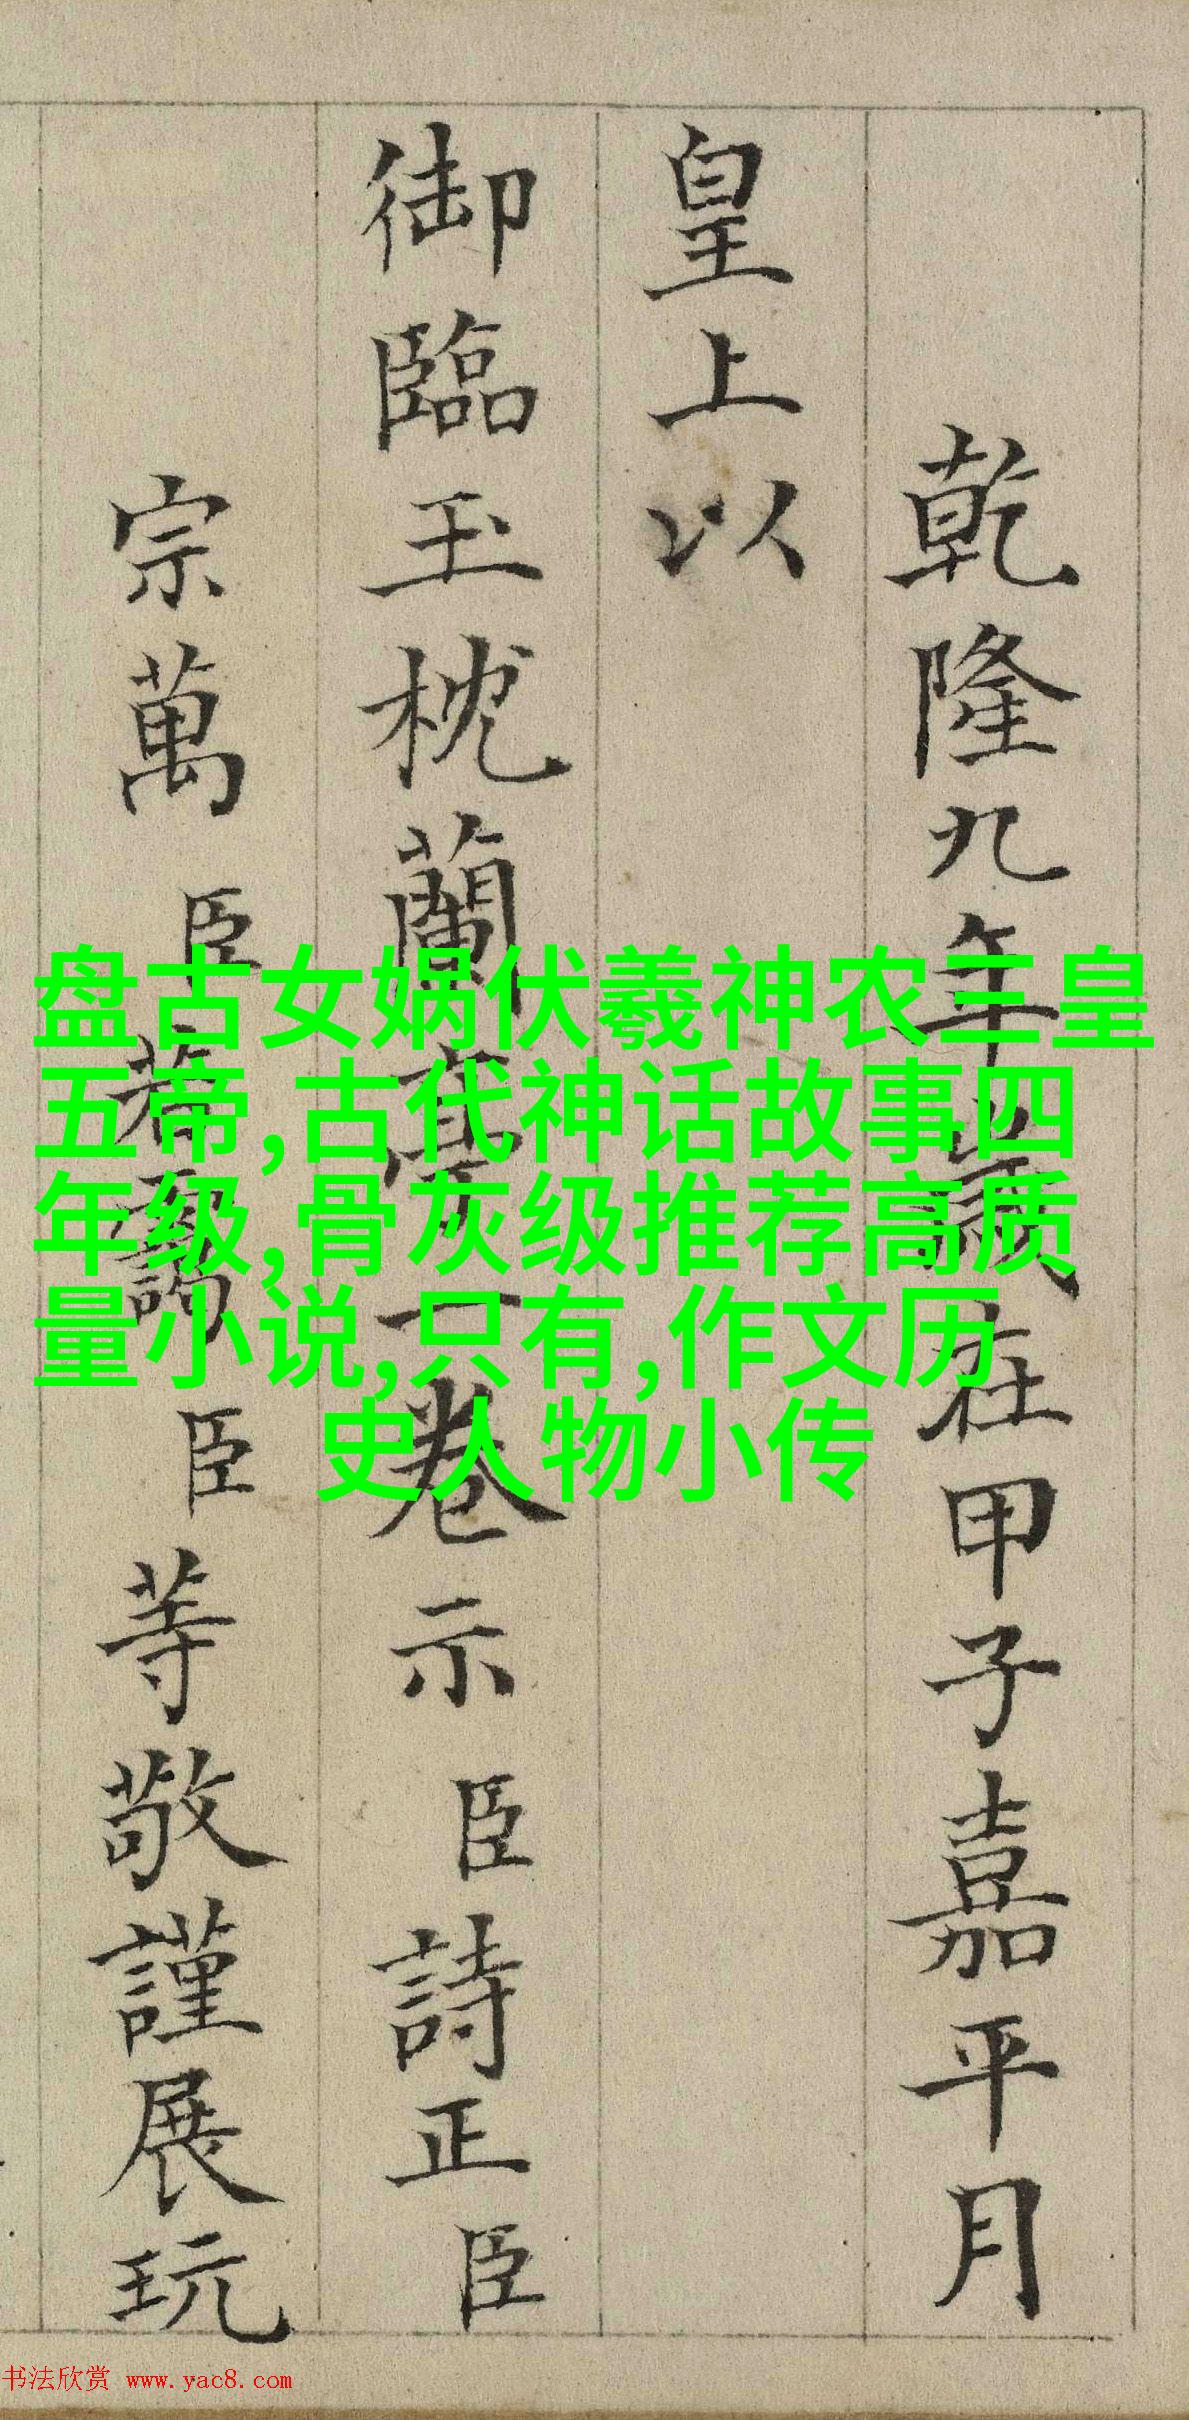 乾隆九年歲在甲子嘉平月
皇上以
御臨玉枕蘭亭一卷示臣詩正臣
宗萬臣若靄臣等敬謹展玩
盘古女娲伏羲神农三皇
五帝,古代神话故事四
年级,骨灰级推荐高质
量小说,只有,作文历
史人物小传
书法欣赏 www.yac8.com